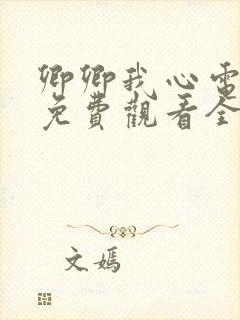 卿卿我心電
免費觀看全
文嫣